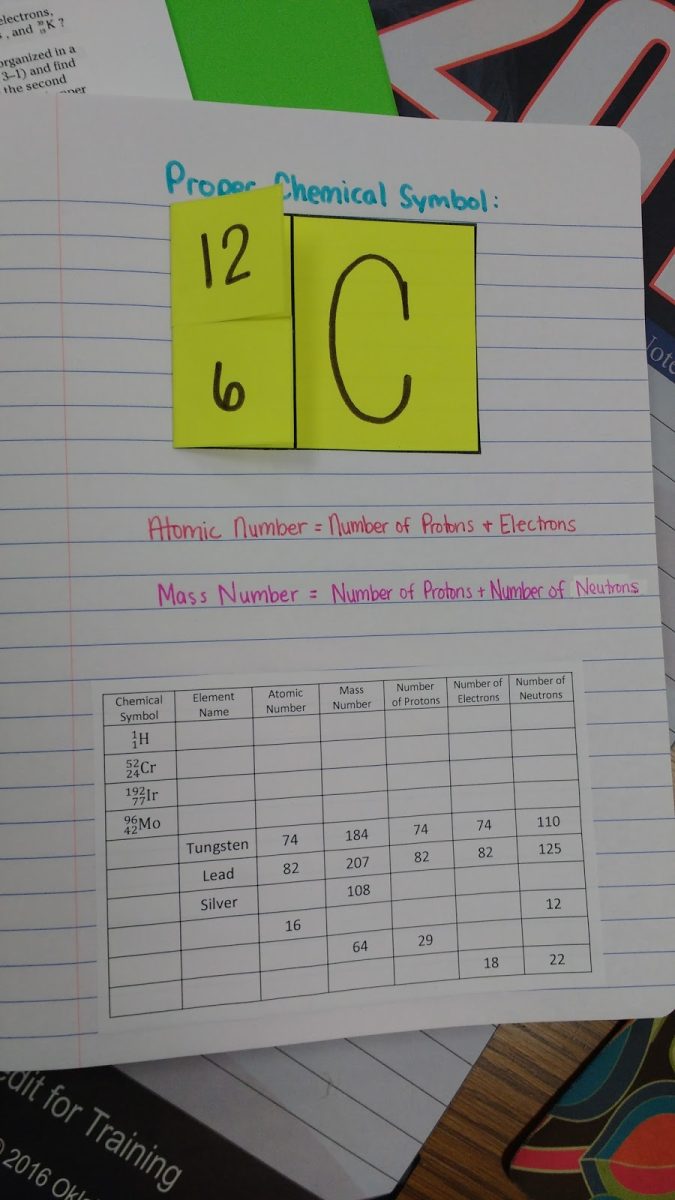 electrons,
, and ³⁹₁₉K ?
organized in a
3–1) and find
the second
Proper Chemical Symbol:
12
6
C
Atomic Number = Number of Protons + Electrons
Mass Number = Number of Protons + Number of Neutrons
Chemical Symbol Element Name Atomic Number Mass Number Number of Protons Number of Electrons Number of Neutrons
¹₁H
⁵²₂₄Cr
¹⁹²₇₇Ir
⁹⁶₄₂Mo
Tungsten 74 184 74 74 110
Lead 82 207 82 82 125
Silver 108
16 12
64 29
18 22
edit for Training
2016